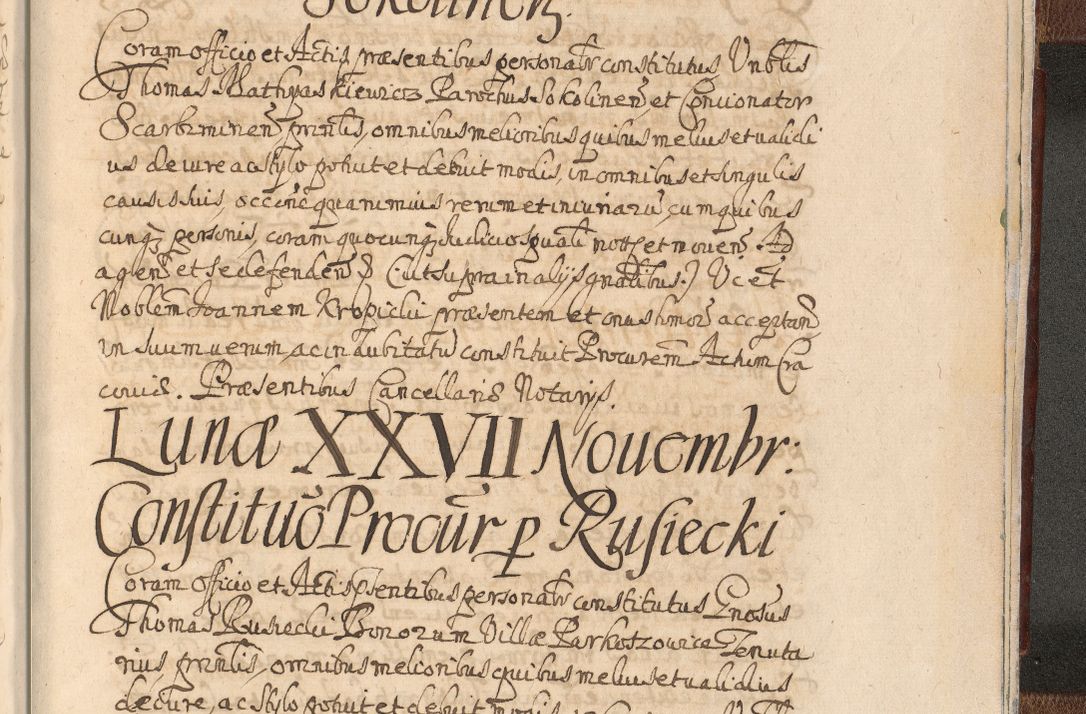 Sokolinen̄.
Coram officio et Actis præsentibus personalr̄ constitutus Vnblīs
Thomas Mathyaskiewicz Parochus Sokolinen̄, et Concionator
Scarbiminen̄ prn̄lis, omnibus melioribus quibus melius et validi
us de iure ac stylo potuit et debuit modis, in omnibus et singulis
causis suis, occ̄ne quarumuis rerum et iniuriarū, cum quibus
cunq; personis, coram quocunq; Iudicio sp̄uali motis et mouen̄. Ad
agen̄ et se defenden̄ (: ut supra in alijs gnālibus :) Vcet
Noblem̄ Joannem Kropidi præsentem et onus hmōi acceptan̄
in suum uerum ac in dubitatū constituit Procurem̄ Actum Cra
couiæ. Præsentibus Cancellariæ Notarijs.
Lunæ XXVII Nouembr:
Constituō Procūr p Rusiecki
Coram officio et Actis pn̄sentibus personalr̄ constitutus Gn̄osus
Thomas Rusiecki Bonorum Villæ Parkoszowice Tenuta
rius, prn̄lis, omnibus melioribus quibus melius et ualidius
de iure, ac stylo potuit et debuit modis